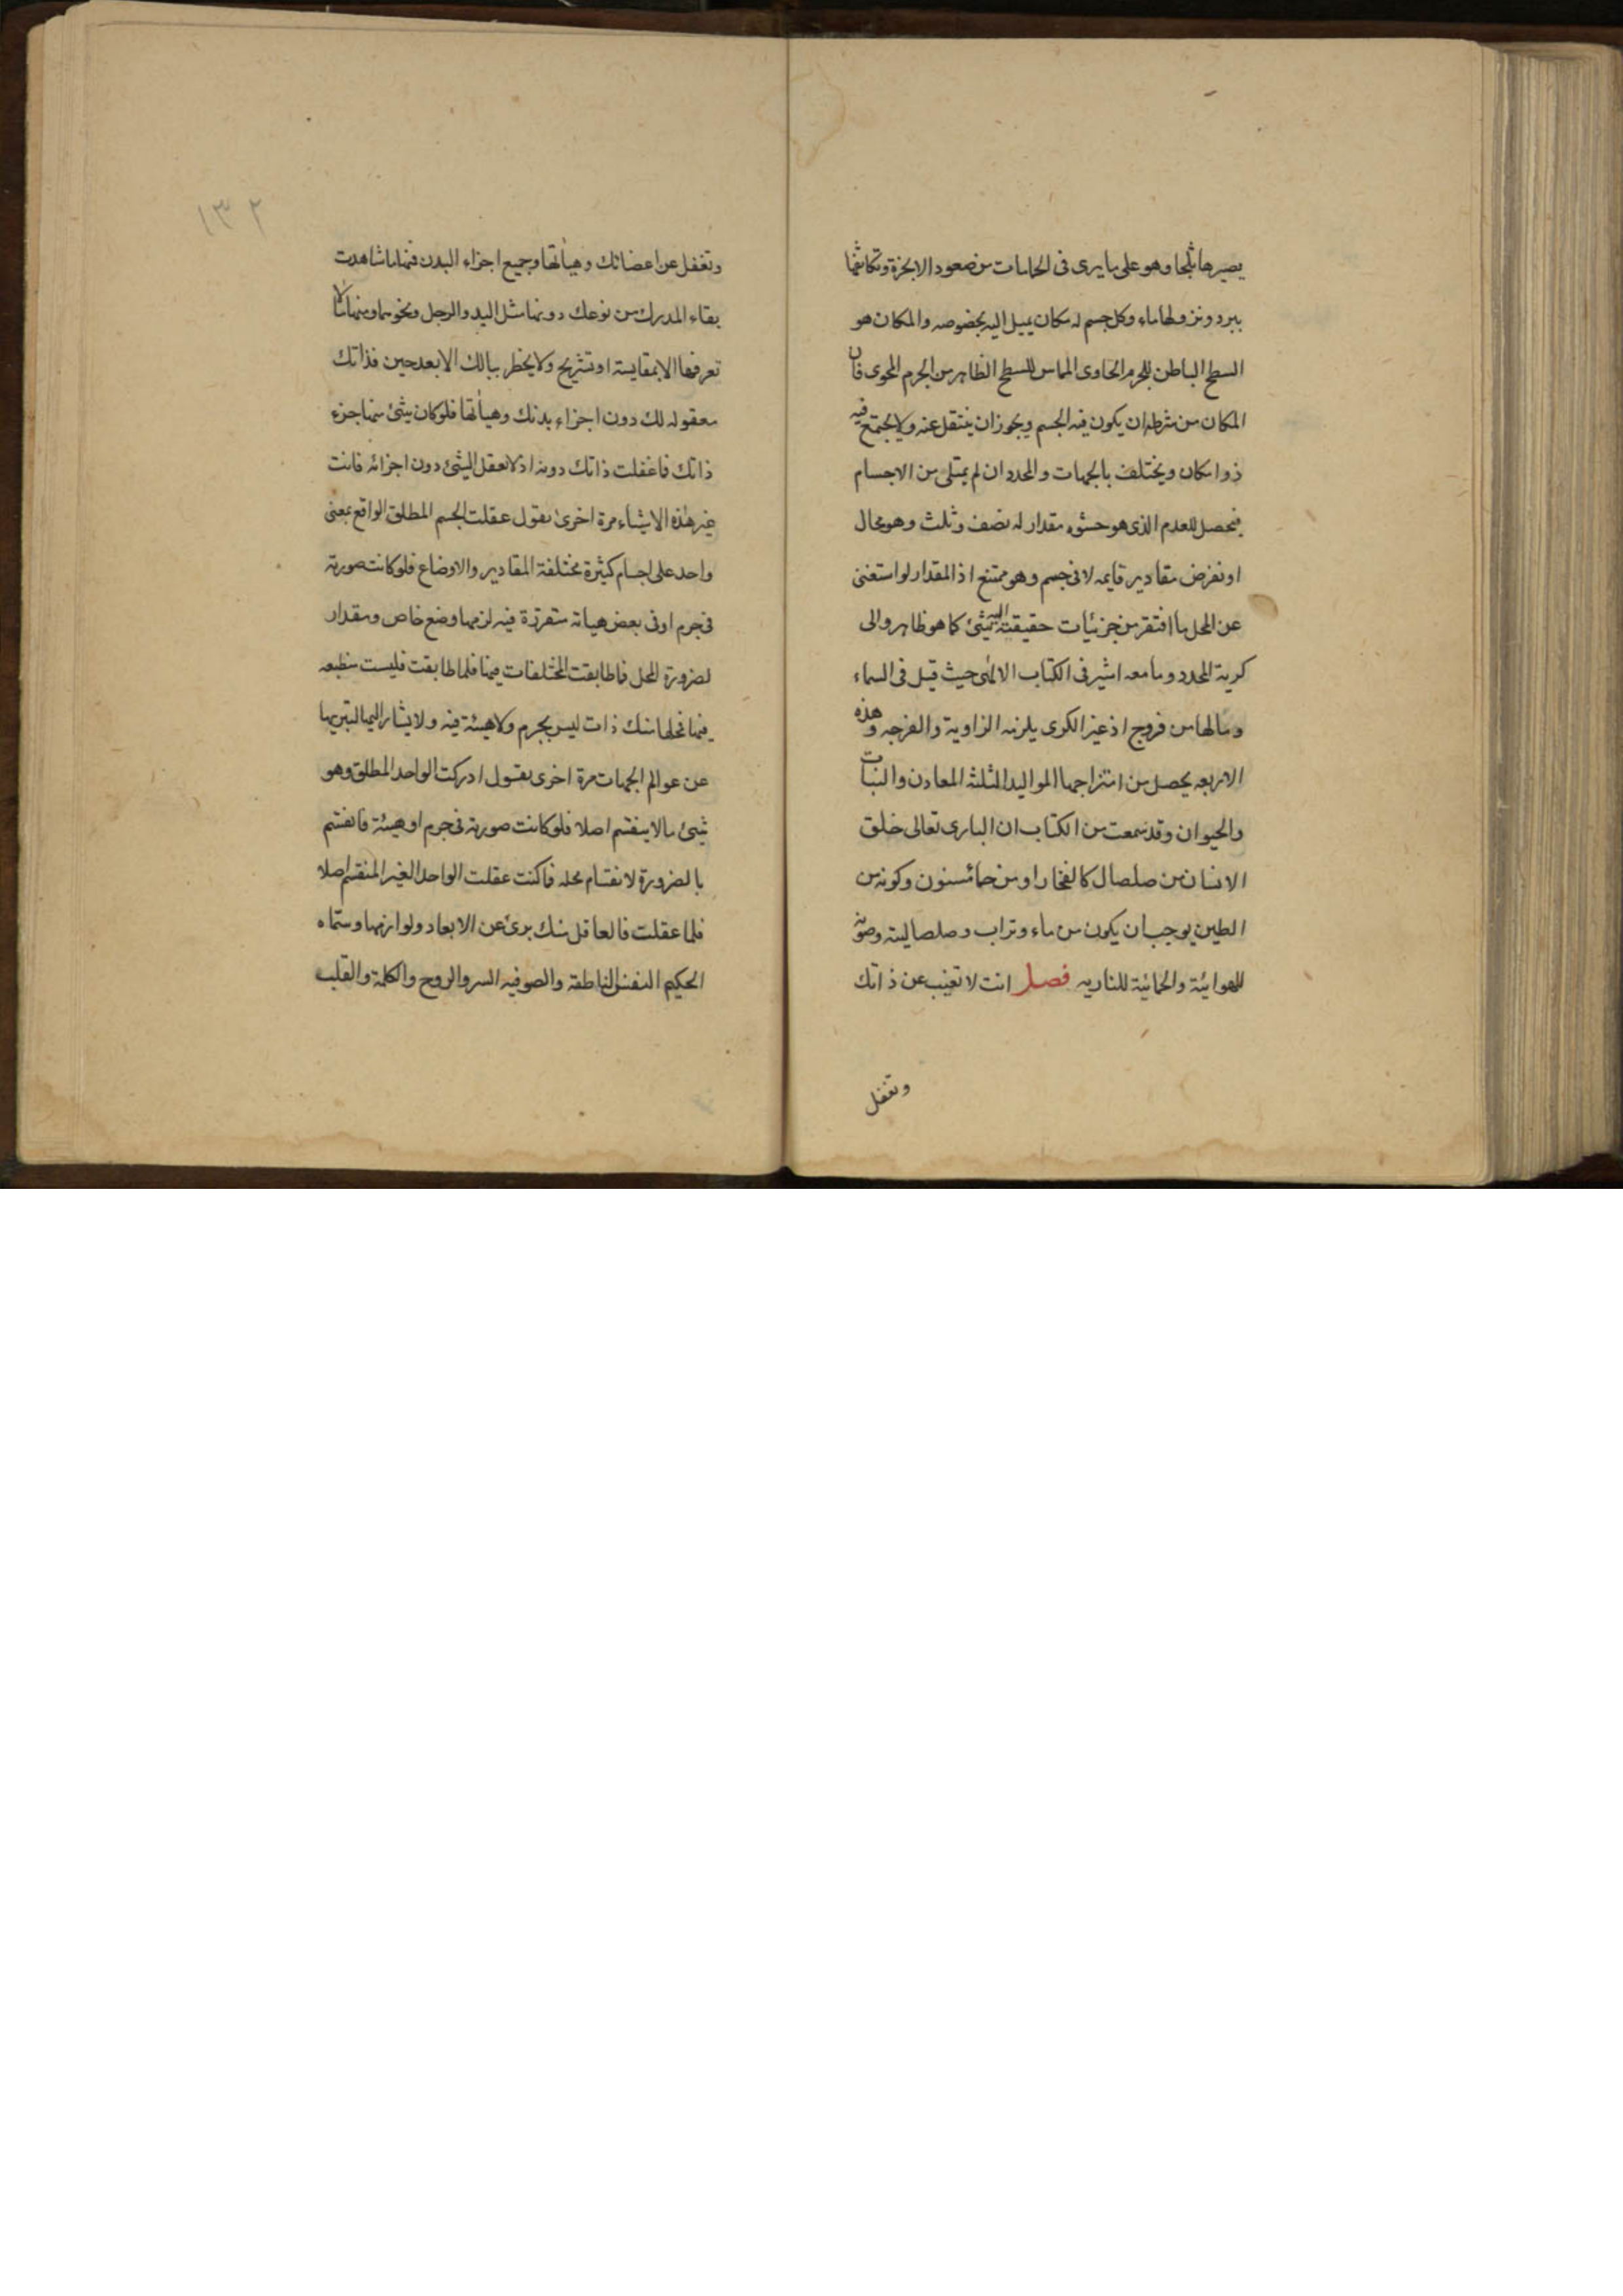 يصيرها ثلجا وهو على ما يرى فى الحمامات من صعود الابخرة وتكاثفها
ببرد ونزولها ماء وكل جسم له مكان يميل اليه بخصوصه والمكان هو
السطح الباطن للجرم الحاوى المماس للسطح الظاهر من الجرم المحوى فان
المكان من شرطه ان يكون فيه الجسم ويجوز ان ينتقل عنه ولا يجتمع فيه
ذوا مكان ويختلف بالجهات والمحدد ان لم يمتلى من الاجسام
فيحصل للعدم الذى هو حشوه مقدار له نصف وثلث وهو محال
او نفرض مقادير قايمه لا فى جسم وهو ممتنع اذ المقدار لو استغنى
عن المحل ما افتقر من جزئيات حقيقته اليه شئ كما هو ظاهر والى
كرية المحدد وما معه اشير فى الكتاب الالهى حيث قيل فى السماء
وما لها من فروج اذ غير الكرى يلزمه الزاوية والفرجه وهذه
الاربعه يحصل من امتزاجها المواليد الثلثه المعادن والنبات
والحيوان وقد سمعت من الكتاب ان البارى تعالى خلق
الانسان من صلصال كالفخار او من حمائسنون وكونه من
الطين يوجب ان يكون من ماء وتراب وصلصاليته وصوته
للهوائية والحمائية للناريه فصل انت لا تغيب عن ذاتك
وتغفل
١٣٢
وتغفل عن اعضائك وهيأتها وجميع اجزاء البدن فمنها ما شاهدت
بقاء المدرك من نوعك دونها مثل اليد والرجل ونحوهما ومنها ما لا
تعرفها الا بمقايسة او تشريح ولا يخطر ببالك الا بعد حين فذاتك
معقوله لك دون اجزاء بدنك وهيأتها فلو كان شئ منها جزء
ذاتك فما عقلت ذاتك دونه اذ لا تعقل الشئ دون اجزائه فانت
غير هذه الاشياء مرة اخرى نقول عقلت الجسم المطلق الواقع بمعنى
واحد على اجسام كثيرة مختلفة المقادير والاوضاع فلو كانت صورته
فى جرم او فى بعض هيأته متقررة فيه لزمها وضع خاص ومقدار
لضرورة المحل فما طابقت المختلفات فيها فلما طابقت فليست منطبعه
فيها فمحلها منك ذات ليس بجرم ولا هيئة فيه ولا يشار اليها لتبريها
عن عوالم الجهات مرة اخرى نقول ادركت الواحد المطلق وهو
شئ ما لا ينقسم اصلا فلو كانت صورته فى جرم او هيئة فانقسم
بالضرورة لانقسام محله فما كنت عقلت الواحد الغير المنقسم اصلا
فلما عقلت فالعاقل منك برئ عن الابعاد ولوازمها وسماه
الحكيم النفس الناطقة والصوفيه السر والروح والكلمة والقلب